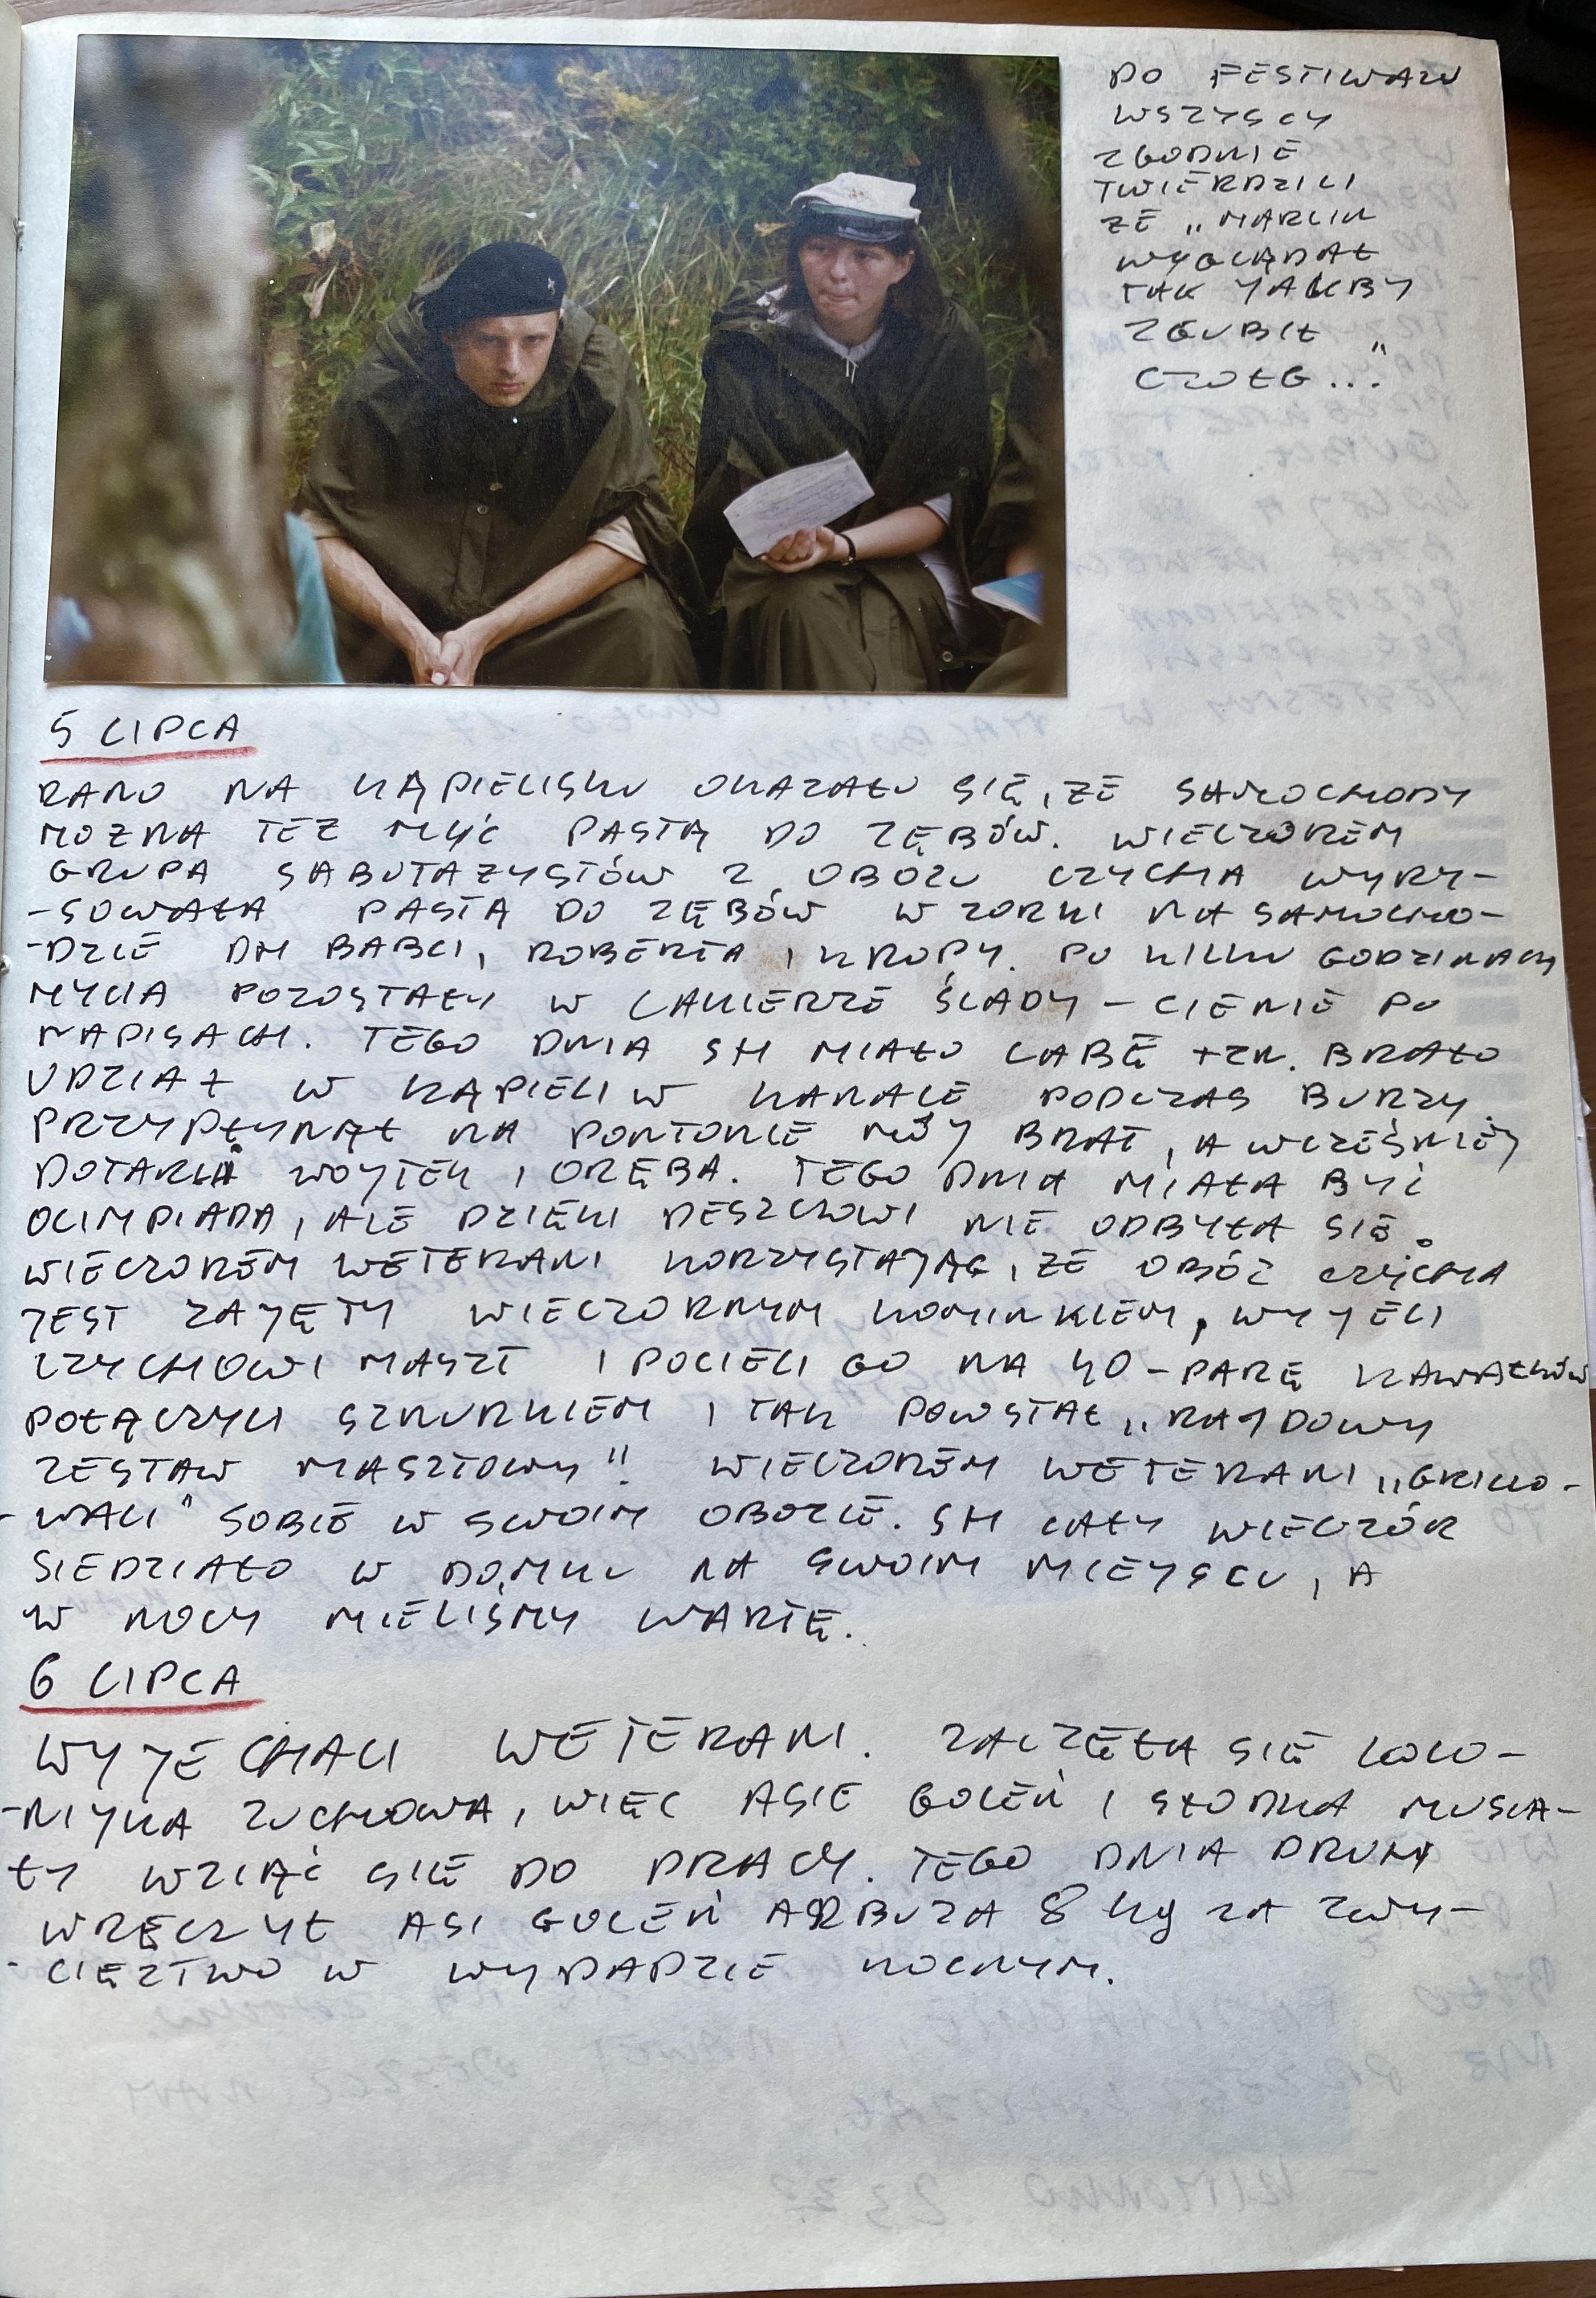 PO FESTIWALU
WSZYSCY
ZGODNIE
TWIERDZILI
ŻE „MARCIN
WYGLĄDAŁ
TAK JAKBY
ZGUBIŁ
CZOŁG..."
5 LIPCA
RANO NA KĄPIELISKU OKAZAŁO SIĘ, ŻE SAMOCHODY
MOŻNA TEŻ MYĆ PASTĄ DO ZĘBÓW. WIECZOREM
GRUPA SABOTAŻYSTÓW Z OBOZU CZYCHA WYRY-
-SOWAŁA PASTĄ DO ZĘBÓW WZORKI NA SAMOCHO-
-DZIE DH BABCI, ROBERTA I KROPY. PO KILKU GODZINACH
MYCIA POZOSTAŁY W LAKIERZE ŚLADY - CIENIE PO
NAPISACH. TEGO DNIA SH MIAŁO LABĘ TZN. BRAŁO
UDZIAŁ W KĄPIELI W KANALE PODCZAS BURZY.
PRZYPŁYNĄŁ NA PONTONIE MÓJ BRAT, A WCZEŚNIEJ
DOTARLI WOJTEK I ORĘBA. TEGO DNIA MIAŁA BYĆ
OLIMPIADA, ALE DZIĘKI DESZCZOWI NIE ODBYŁA SIĘ.
WIECZOREM WETERANI KORZYSTAJĄC, ŻE OBÓZ CZYCHA
JEST ZAJĘTY WIECZORNYM KOMINKIEM, WYJĘLI
CZYCHOWI MASZT I POCIĘLI GO NA 40-PARĘ KAWAŁKÓW
POŁĄCZYLI SZNURKIEM I TAK POWSTAŁ „RAJDOWY
ZESTAW MASZTOWY"! WIECZOREM WETERANI „GRILLO-
-WALI" SOBIE W SWOIM OBOZIE. SH CAŁY WIECZÓR
SIEDZIAŁO W DOMKU NA SWOIM MIEJSCU, A
W NOCY MIELIŚMY WARTĘ.
6 LIPCA
WYJECHALI WETERANI. ZACZĘŁA SIĘ KOLO-
-NIJKA ZUCHOWA, WIĘC ASIE GOLEŃ I SŁODKA MUSIA-
ŁY WZIĄĆ SIĘ DO PRACY. TEGO DNIA DRUHY
WRĘCZYŁ ASI GOLEŃ ARBUZA 8 kg ZA ZWY-
-CIĘZTWO W WYPADZIE NOCNYM.